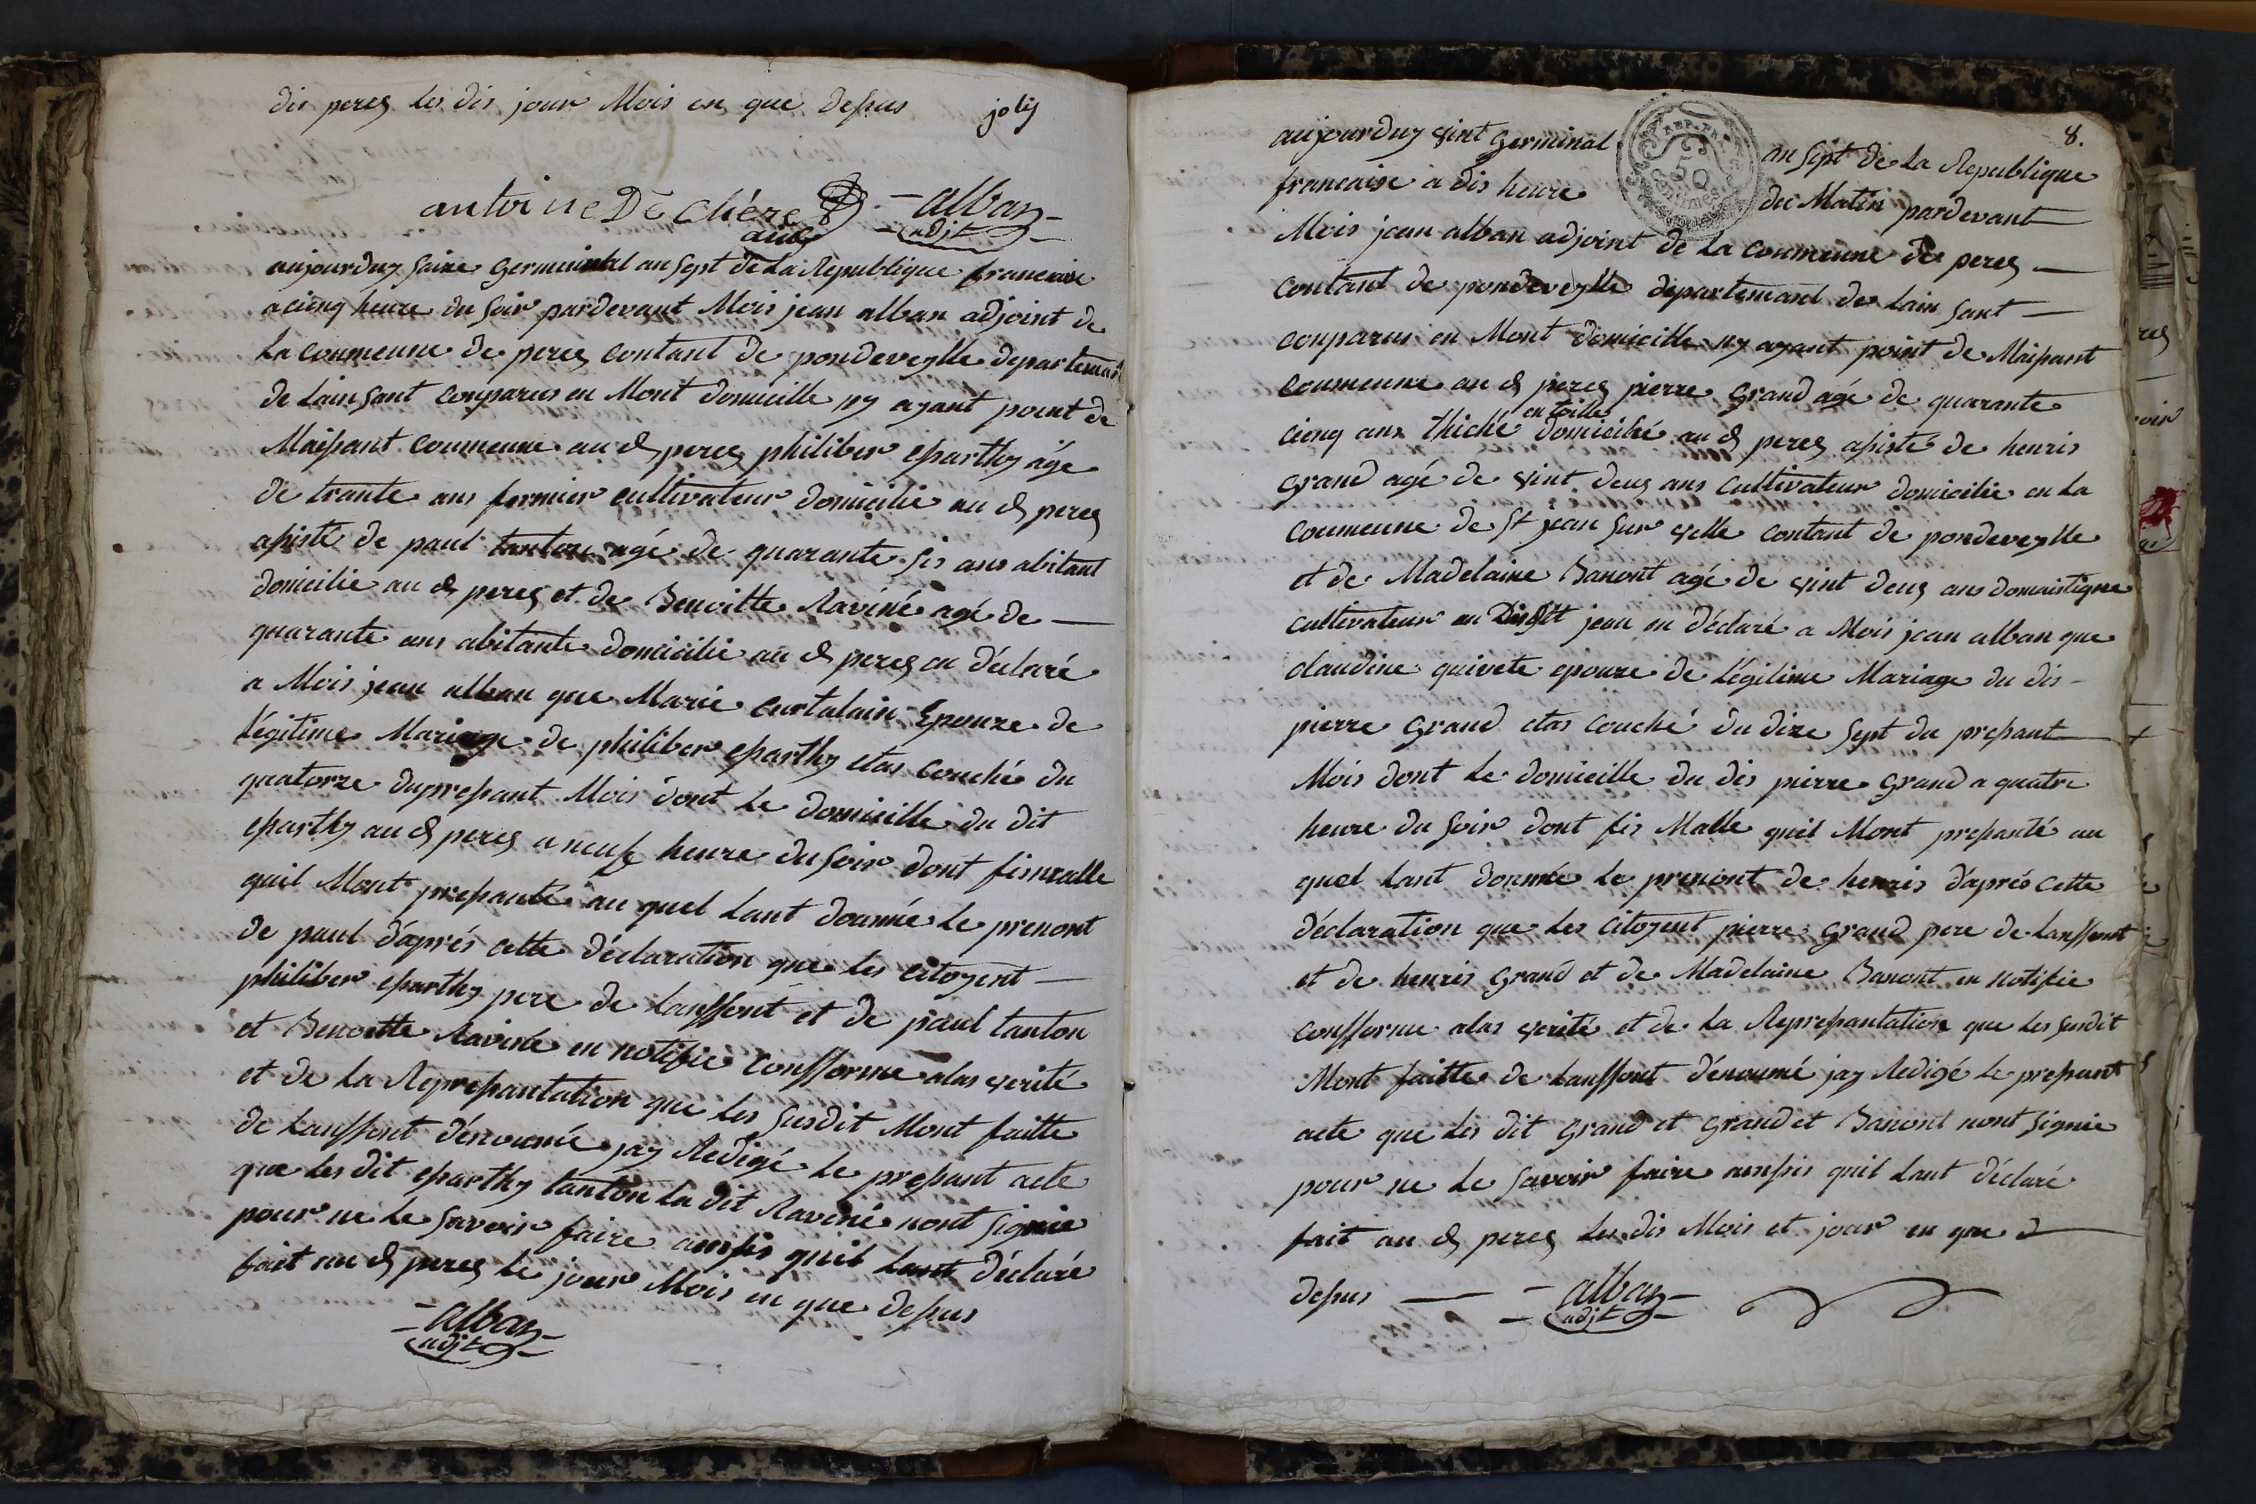 dis perey les dis jour Mois en que depus joly
antoine De Chére alban
ainé adjt
aujourduy saize germinal an sept de La Republique francaise
a cienq heure du soir pardevant Mois jean alban adjoint de
La coumeune de perey contant de pondeveylle departemant
de Lain sont conparus en Mont domicille ny ayant point de
Maisant coumeune au d perey philiber eparthy áge
de trante ans fermier cultivateur domicilie au d perey
asisté de paul tanton agé de quarante sis ans abitant
domicilie au d perey et de Benoitte Raviné agé de
quarante ans abitante domicilie au d perey on déclaré
a Mois jean alban que Marie curtalain Epouze de
Légitime Mariage de philiber eparthy etas couché du
quatorze dupresant Mois dont Le domicille du dit
eparthy au d perey a neufz heure du soir dont fis malle
quil Mont presanté au quel Lant donnée Le prenont
de paul d'aprés cette déclaration que les citoyent
philiber eparthy pere de Lansfent et de paul tanton
et Benoitte Raviné en notifie consforme alas verité
et de La Represantation que Les susdit Mont faitte
de Lansfent dénoumé jay Redigé Le presant acte
que Les dit eparthy tanton La dit Raviné nont signie
pour ne Le savoir faire ansis quil Lant déclaré
fait au d perey Le jour Mois en que depus
alban
adjt
8.
aujourduy vint germinal an sept de La Republique
francaise a dis heure du Matin pardevant
Mois jean alban adjoint de La coumeune de perey
contant de pondeveylle departemand de Lain sont
conparus en Mont domicille ny ayant point de Maisant
coumeune au d perey pierre grand agé de quarante
en toille
cienq ans thiché domicilié au d perey asisté de henris
grand agé de vint deus ans cultivateur domicilie en La
coumeune de St jean sur velle contant de pondeveylle
et de Madelaine Banont agé de vint deus ans domaistique
cultivateur au St jean on déclaré a Mois jean alban que
claudine quivete epouze de Légitime Mariage du dis
pierre grand etas couché du dize sept du presant
Mois dont Le domicille du dis pierre grand a quatre
heure du soir dont fis Malle quil Mont presanté au
quel Lant donnée Le prenont de henris d'aprés cette
déclaration que Les citoyent pierre grand pere de Lansfent
et de henris grand et de Madelaine Banont en notifie
consforme alas verité et de La Represantation que Les susdit
Mont faitte de Lansfent dénoumé jay Redigé Le presant
acte que Les dit grand et grand et Banont nont signie
pour ne Le savoir faire ansis quil Lant déclaré
fait au d perey Les dis Mois et jour en que d
depus alban
adjt